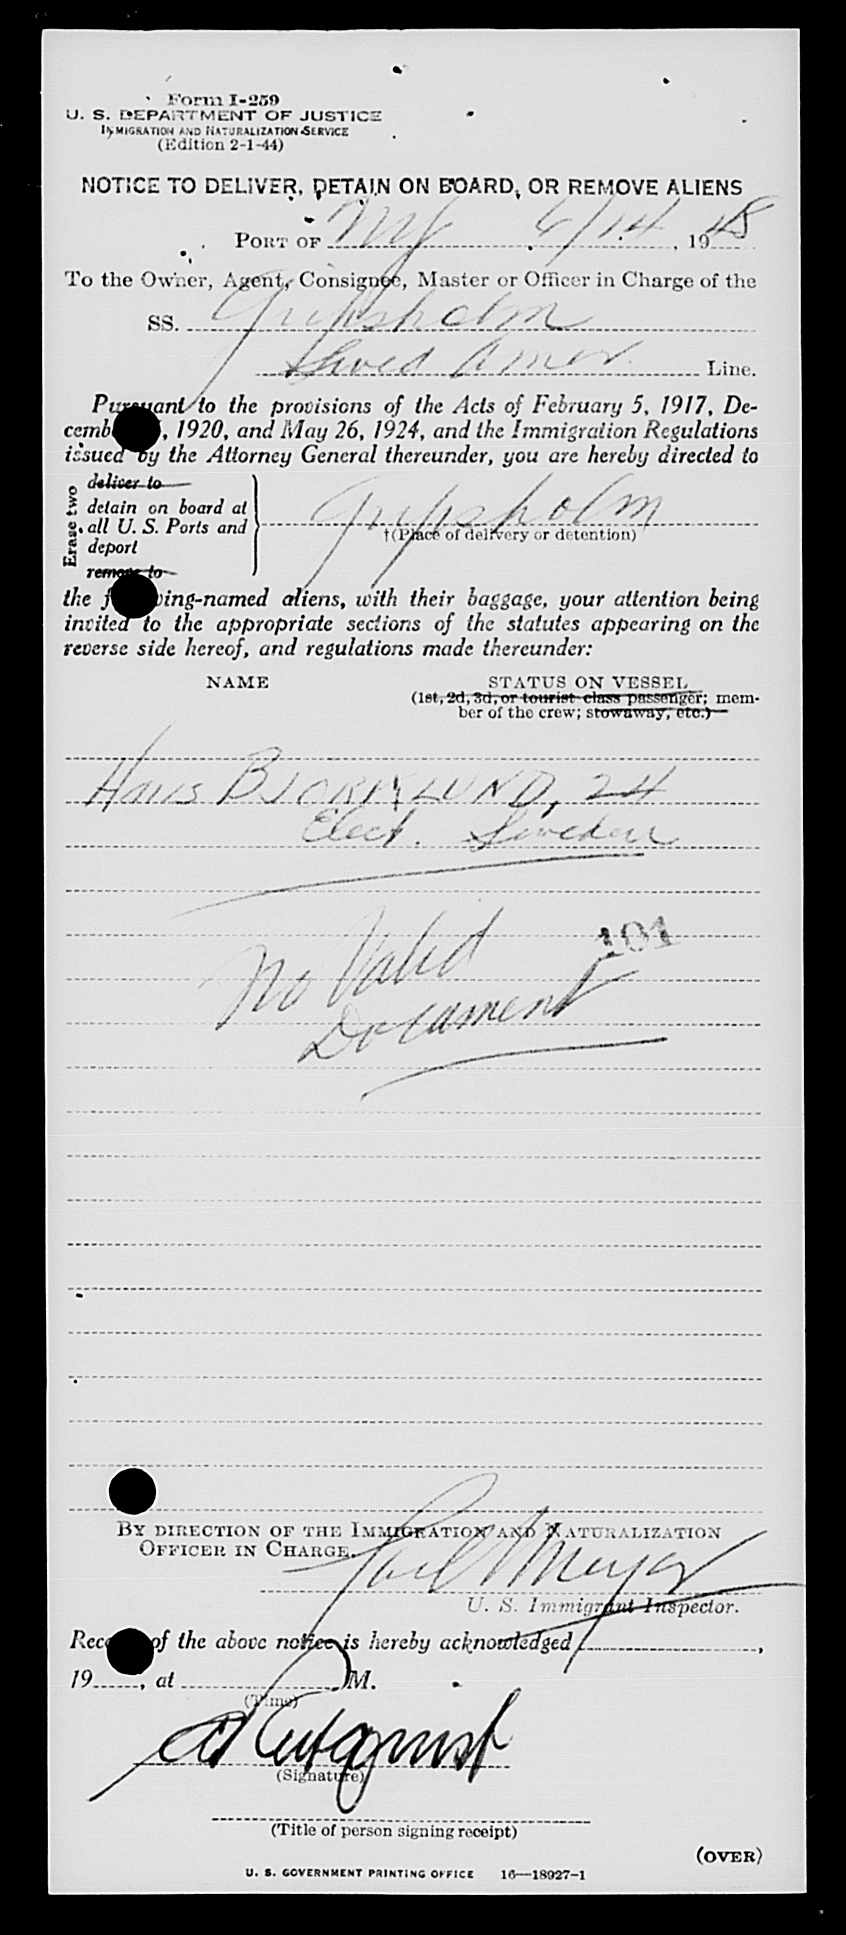 Form I-259
U. S. DEPARTMENT OF JUSTICE
IMMIGRATION AND NATURALIZATION SERVICE
(Edition 2-1-44)
NOTICE TO DELIVER, DETAIN ON BOARD, OR REMOVE ALIENS
PORT OF NY 6/14, 1948
To the Owner, Agent, Consignee, Master or Officer in Charge of the
SS. Gripsholm
Swed Amer. Line.
Pursuant to the provisions of the Acts of February 5, 1917, De-
cemb , 1920, and May 26, 1924, and the Immigration Regulations
issued by the Attorney General thereunder, you are hereby directed to
Erase two
deliver to
detain on board at
all U. S. Ports and
deport
remove to
Gripsholm
†(Place of delivery or detention)
the f wing-named aliens, with their baggage, your attention being
invited to the appropriate sections of the statutes appearing on the
reverse side hereof, and regulations made thereunder:
NAME STATUS ON VESSEL
(1st, 2d, 3d, or tourist class passenger; mem-
ber of the crew; stowaway, etc.)
Hans BJORKLUND, 24
Elect. Sweden
101
No Valid
Document
BY DIRECTION OF THE IMMIGRATION AND NATURALIZATION
OFFICER IN CHARGE.
U. S. Immigrant Inspector.
Rec of the above notice is hereby acknowledged ,
19 , at M.
(Time)
(Signature)
(Title of person signing receipt)
(OVER)
U. S. GOVERNMENT PRINTING OFFICE 16—18927-1